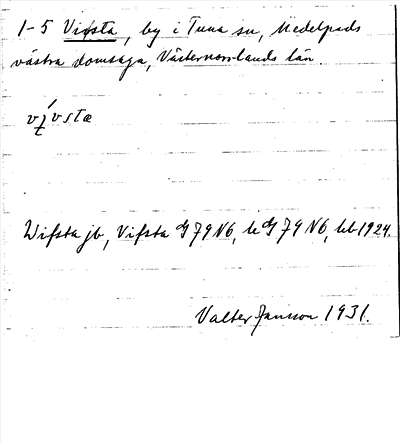 1-5 Vifsta, by i Tuna sn, Medelpads
västra domsaga, Västernorrlands län.
Wifsta jb, Vifsta GJ 79 N6, le GJ 79 N6, hb 1924.
Valter Jansson 1931.